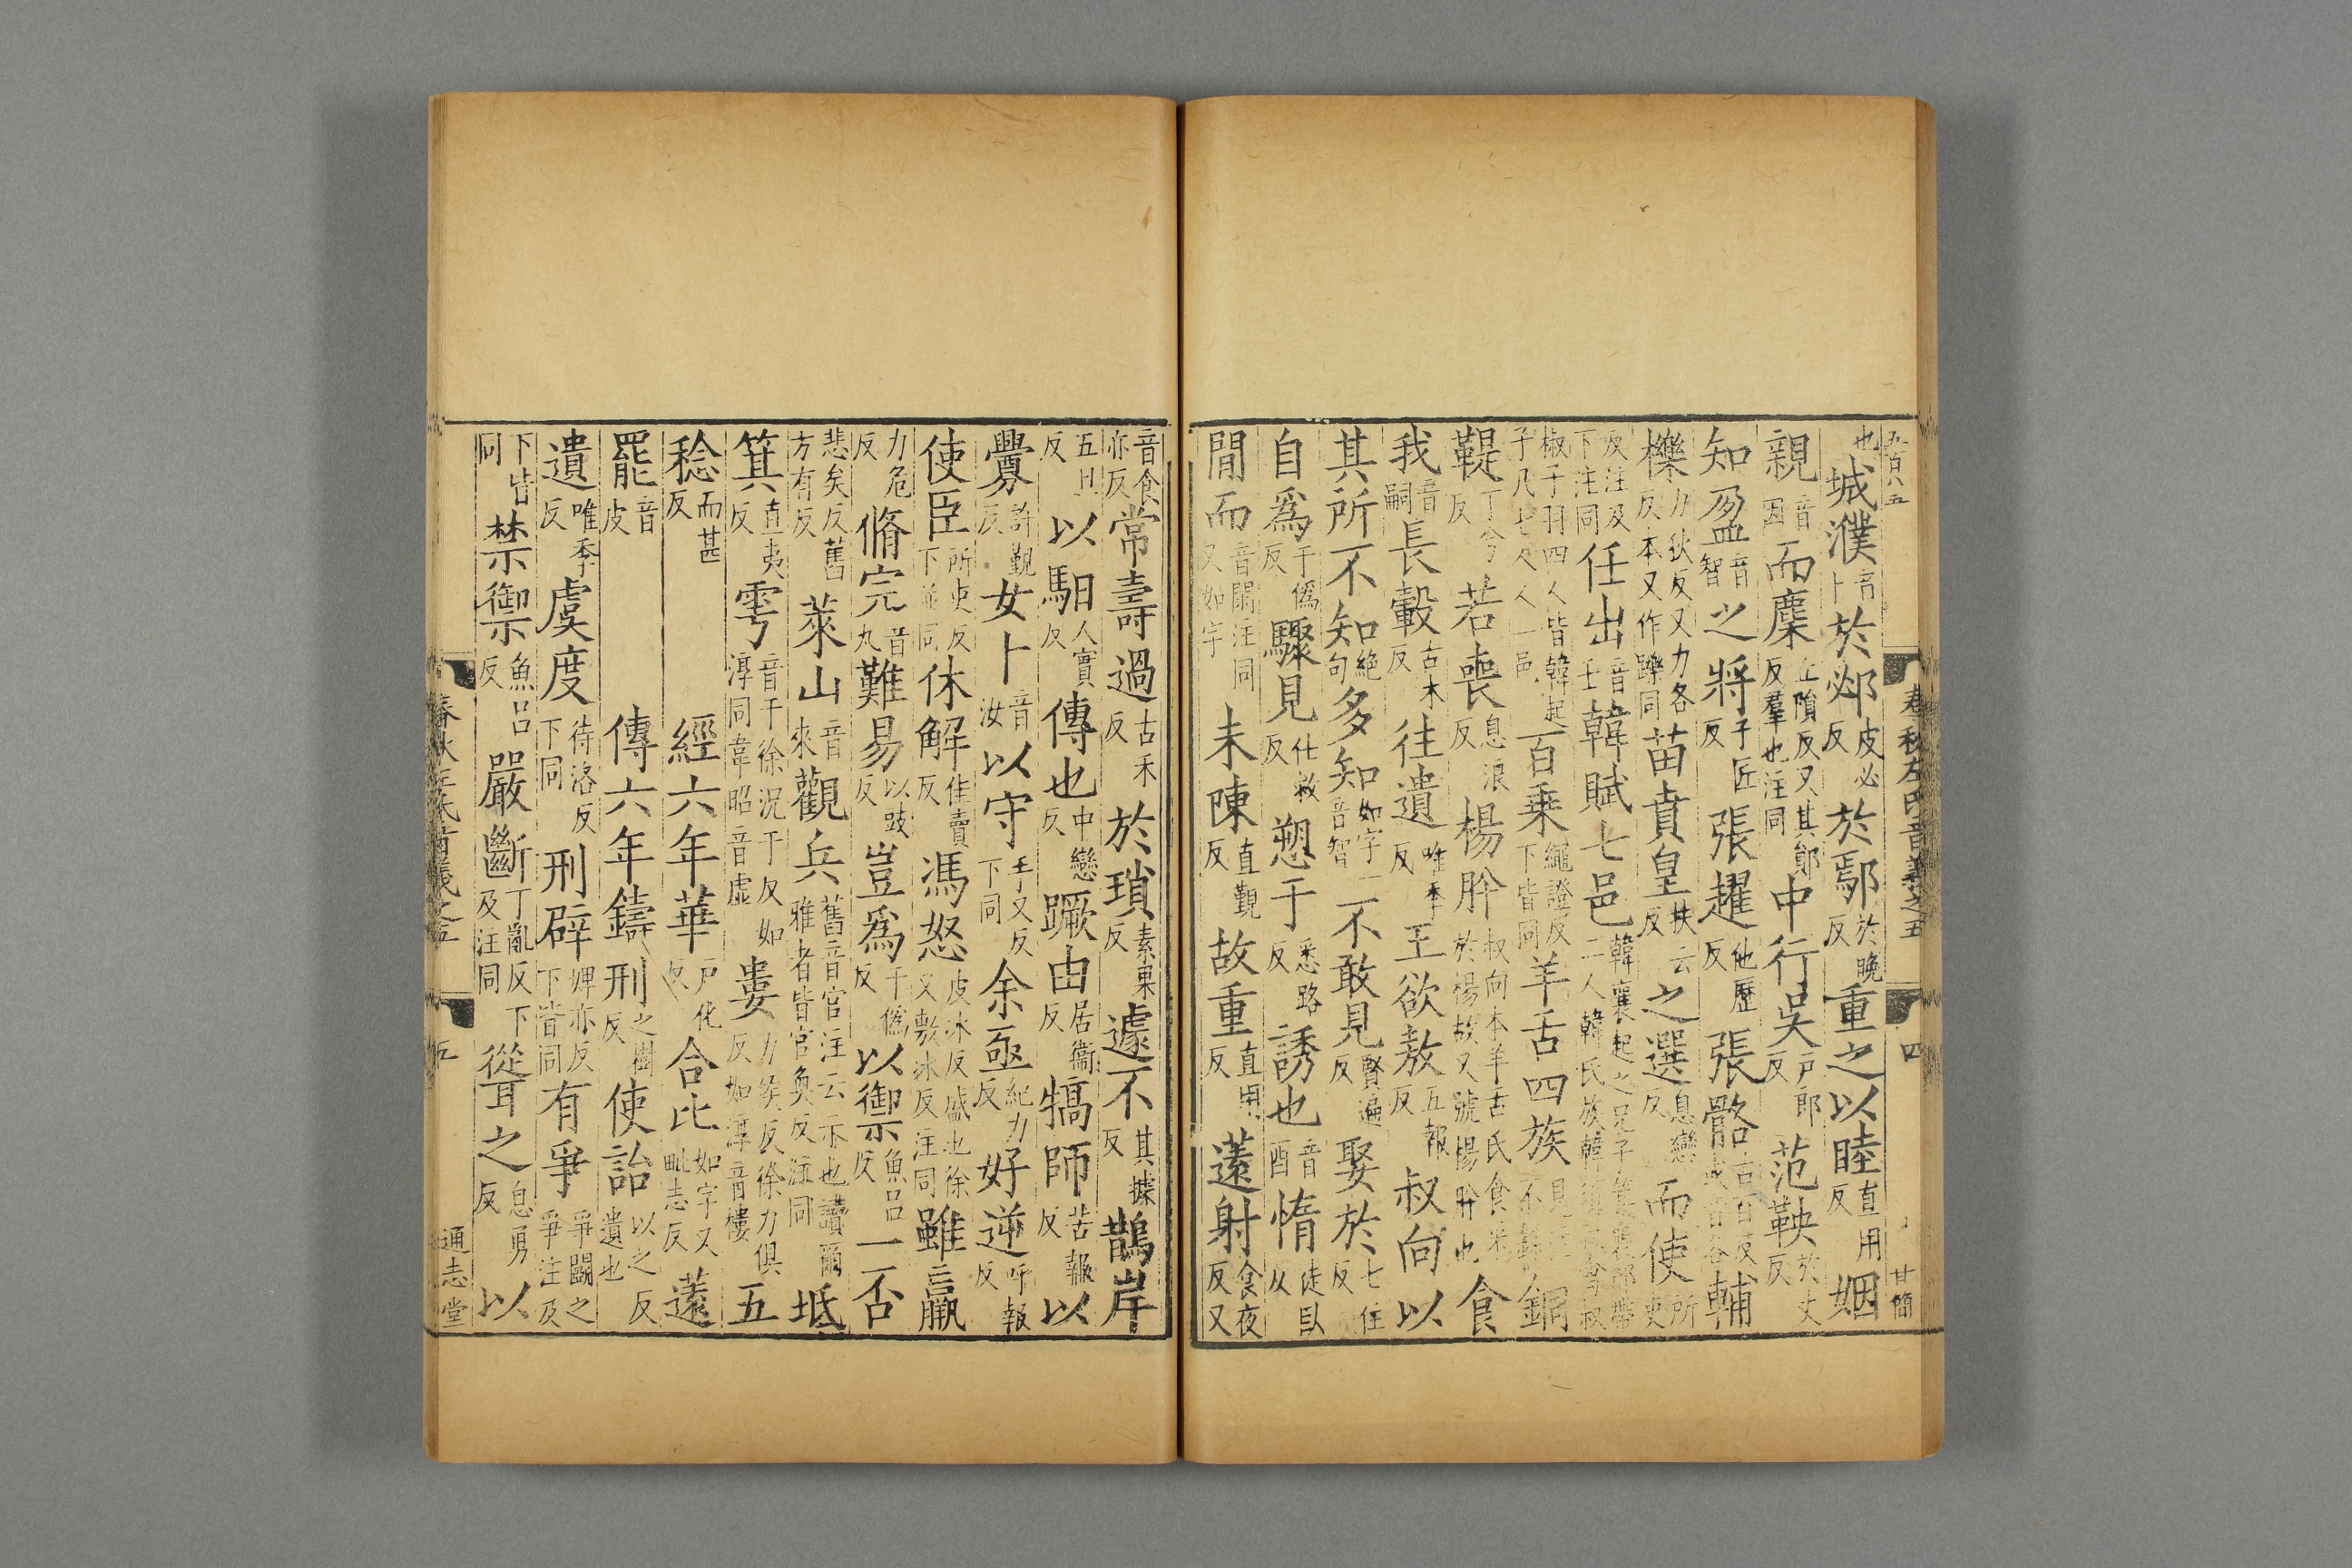 五百八五 春秋左氏音義之五 四 甘簡
也城濮音卜於邲皮必反於鄢於晚反重之以睦直用反姻
親音因而麇丘隕反又其郧反羣也注同中行吳戶郎反范鞅於丈反
知盈音智之將子匠反張趯他歷反張骼輔
櫟力狄反又力各反本又作躒同苗賁皇扶云反之選息戀反而使所吏
反注及下注同任出音壬韓賦七邑韓襄起之兄子
椒子羽四人皆韓起子凡七人人一邑百乘繩證反下皆同羊舌四族銅
鞮丁兮反若喪息浪反楊肸叔向本羊舌氏食采於楊故又號楊肸也食
我音嗣長轂古木反往遺唯季反王欲敖五報反叔向以
其所不知絕句多知如字一音智不敢見賢遍反娶於七住反
自爲于僞反驟見仕救反愬于悉路反誘也音酉惰徒臥反
閒而音閑注同又如字未陳直覲反故重直用反薳射食夜反又
音食亦反常壽過古禾反於瑣素果反遽不其據反鵲岸
五旦反以馹人實反傳也中戀反蹶由居衞反犒師苦報反以
釁許覲反女卜音汝以守手又反下同余亟紀力反好逆呼報反
使臣所吏反下並同休解佳賣反馮怒皮冰反盛也徐又敷冰反注同雖羸
力危反脩完音丸難易以豉反豈爲于僞反以御魚呂反一否
悲矣反舊方有反萊山音來觀兵舊音官注云示也讀爾雅者皆官奐反注同坻
箕直夷反雩音于徐況于反如淳同韋昭音虛婁力侯反徐力俱反如淳音樓五
稔而甚反經六年華戶化反合比如字又毗志反薳
罷音皮傳六年鑄刑之樹反使詒以之反遺也
遺唯季反虞度待洛反下同刑辟婢亦反下皆同有爭爭鬬之爭注及
下皆同禁禦魚呂反嚴斷丁亂反下及注同聳之息勇反以
春秋左氏音義之五 五 通志堂